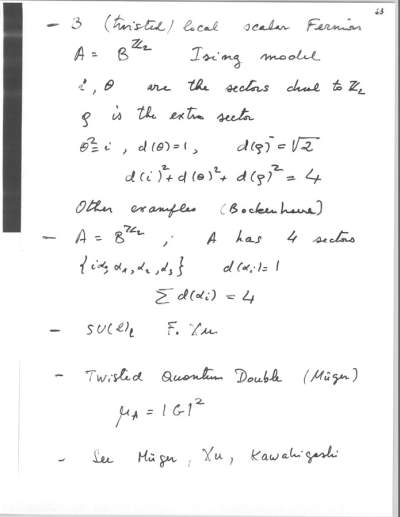 - ∃ (twisted) local scalar Fermion
A = B^{ℤ₂} Ising model
i, θ are the sectors dual to ℤ₂
ρ is the extra sector
θ² = i, d(θ)=1, d(ρ) = √2
d(i)² + d(θ)² + d(ρ)² = 4
Other examples (Bockenhauer)
- A = B^{ℤ₂} ; A has 4 sectors
{id, α₁, α₂, α₃} d(αᵢ) = 1
Σ d(αᵢ) = 4
- SU(ℓ)₂ F. Xu
- Twisted Quantum Double (Müger)
μ_A = |G|²
- See Müger, Xu, Kawahigashi